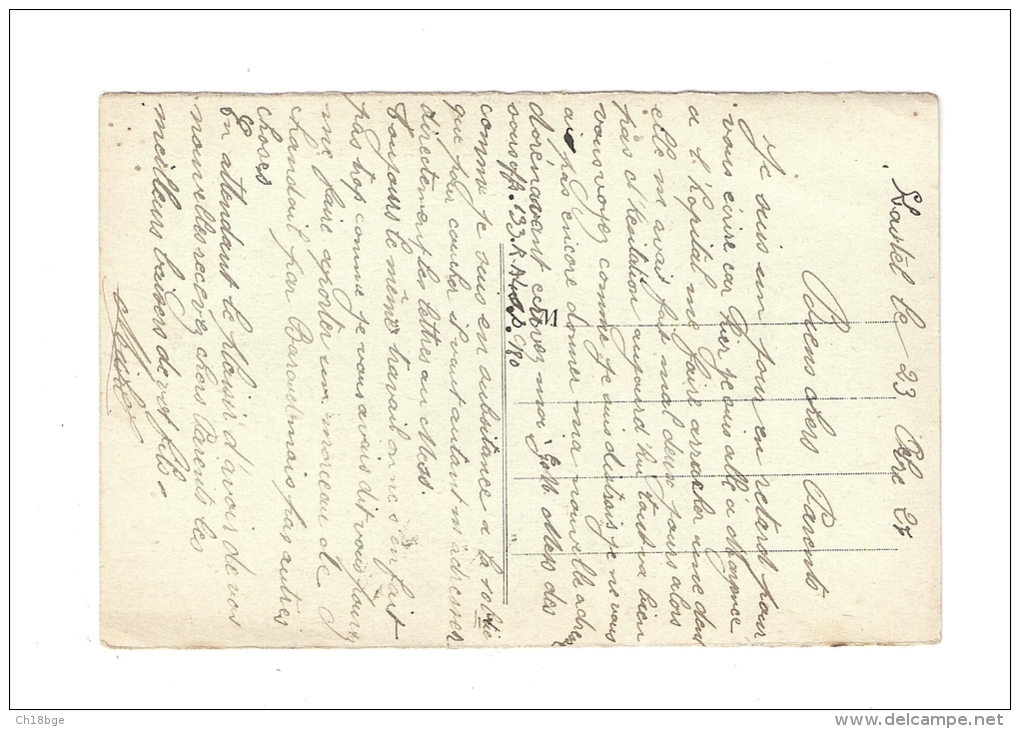 Kastel le 23 Obre 27
Biens chers Parents
Je suis un jour en retard pour
vous écrire car hier je suis allé à Mayence
a l'hopital me faire arracher une dent
elle m'avais fait mal deux jours alors
pas d'hésitation aujourd'hui tout va bien
vous voyez comme je suis distrais je ne vous
ai pas encore donner ma nouvelle adres
dorénavant ecrivez moi G.M. Mess des
sous off. 133. R S.P. 180
comme je suis en subsistance a la
que pour coucher s'vaut autant m'adresser
directement les lettres au Mess.
Toujours le même travail on ne s'en fait
pas trop comme je vous avais dit vous pouvez
me faire apporter un morceau de
chandail par Baraud mois pas autres
choses
En attendant le plaisir d'avoir de vos
nouvelles recevez chers Parents les
meilleurs baisers de votre fils.
Ch18bge
www.delcampe.net